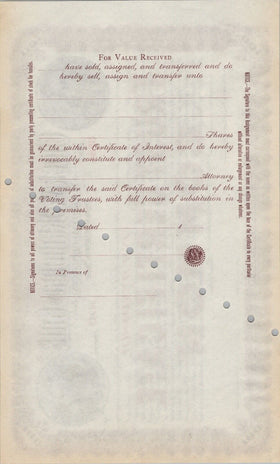 FOR VALUE RECEIVED
have sold, assigned, and transferred and do
hereby sell, assign and transfer unto
Shares
of the within Certificate of Interest, and do hereby
irrevocably constitute and appoint
Attorney
to transfer the said Certificate on the books of the
Voting Trustees, with full power of substitution in
the premises.
Dated 1
In Presence of
NOTICE.—The Signature to this Assignment must correspond with the name as written upon the face of the Certificate in every particular without alteration or enlargement or any change whatever.
NOTICE.—Signatures to all power of attorney and also all power of substitution must be guaranteed by party presenting certificate of stock for transfer.